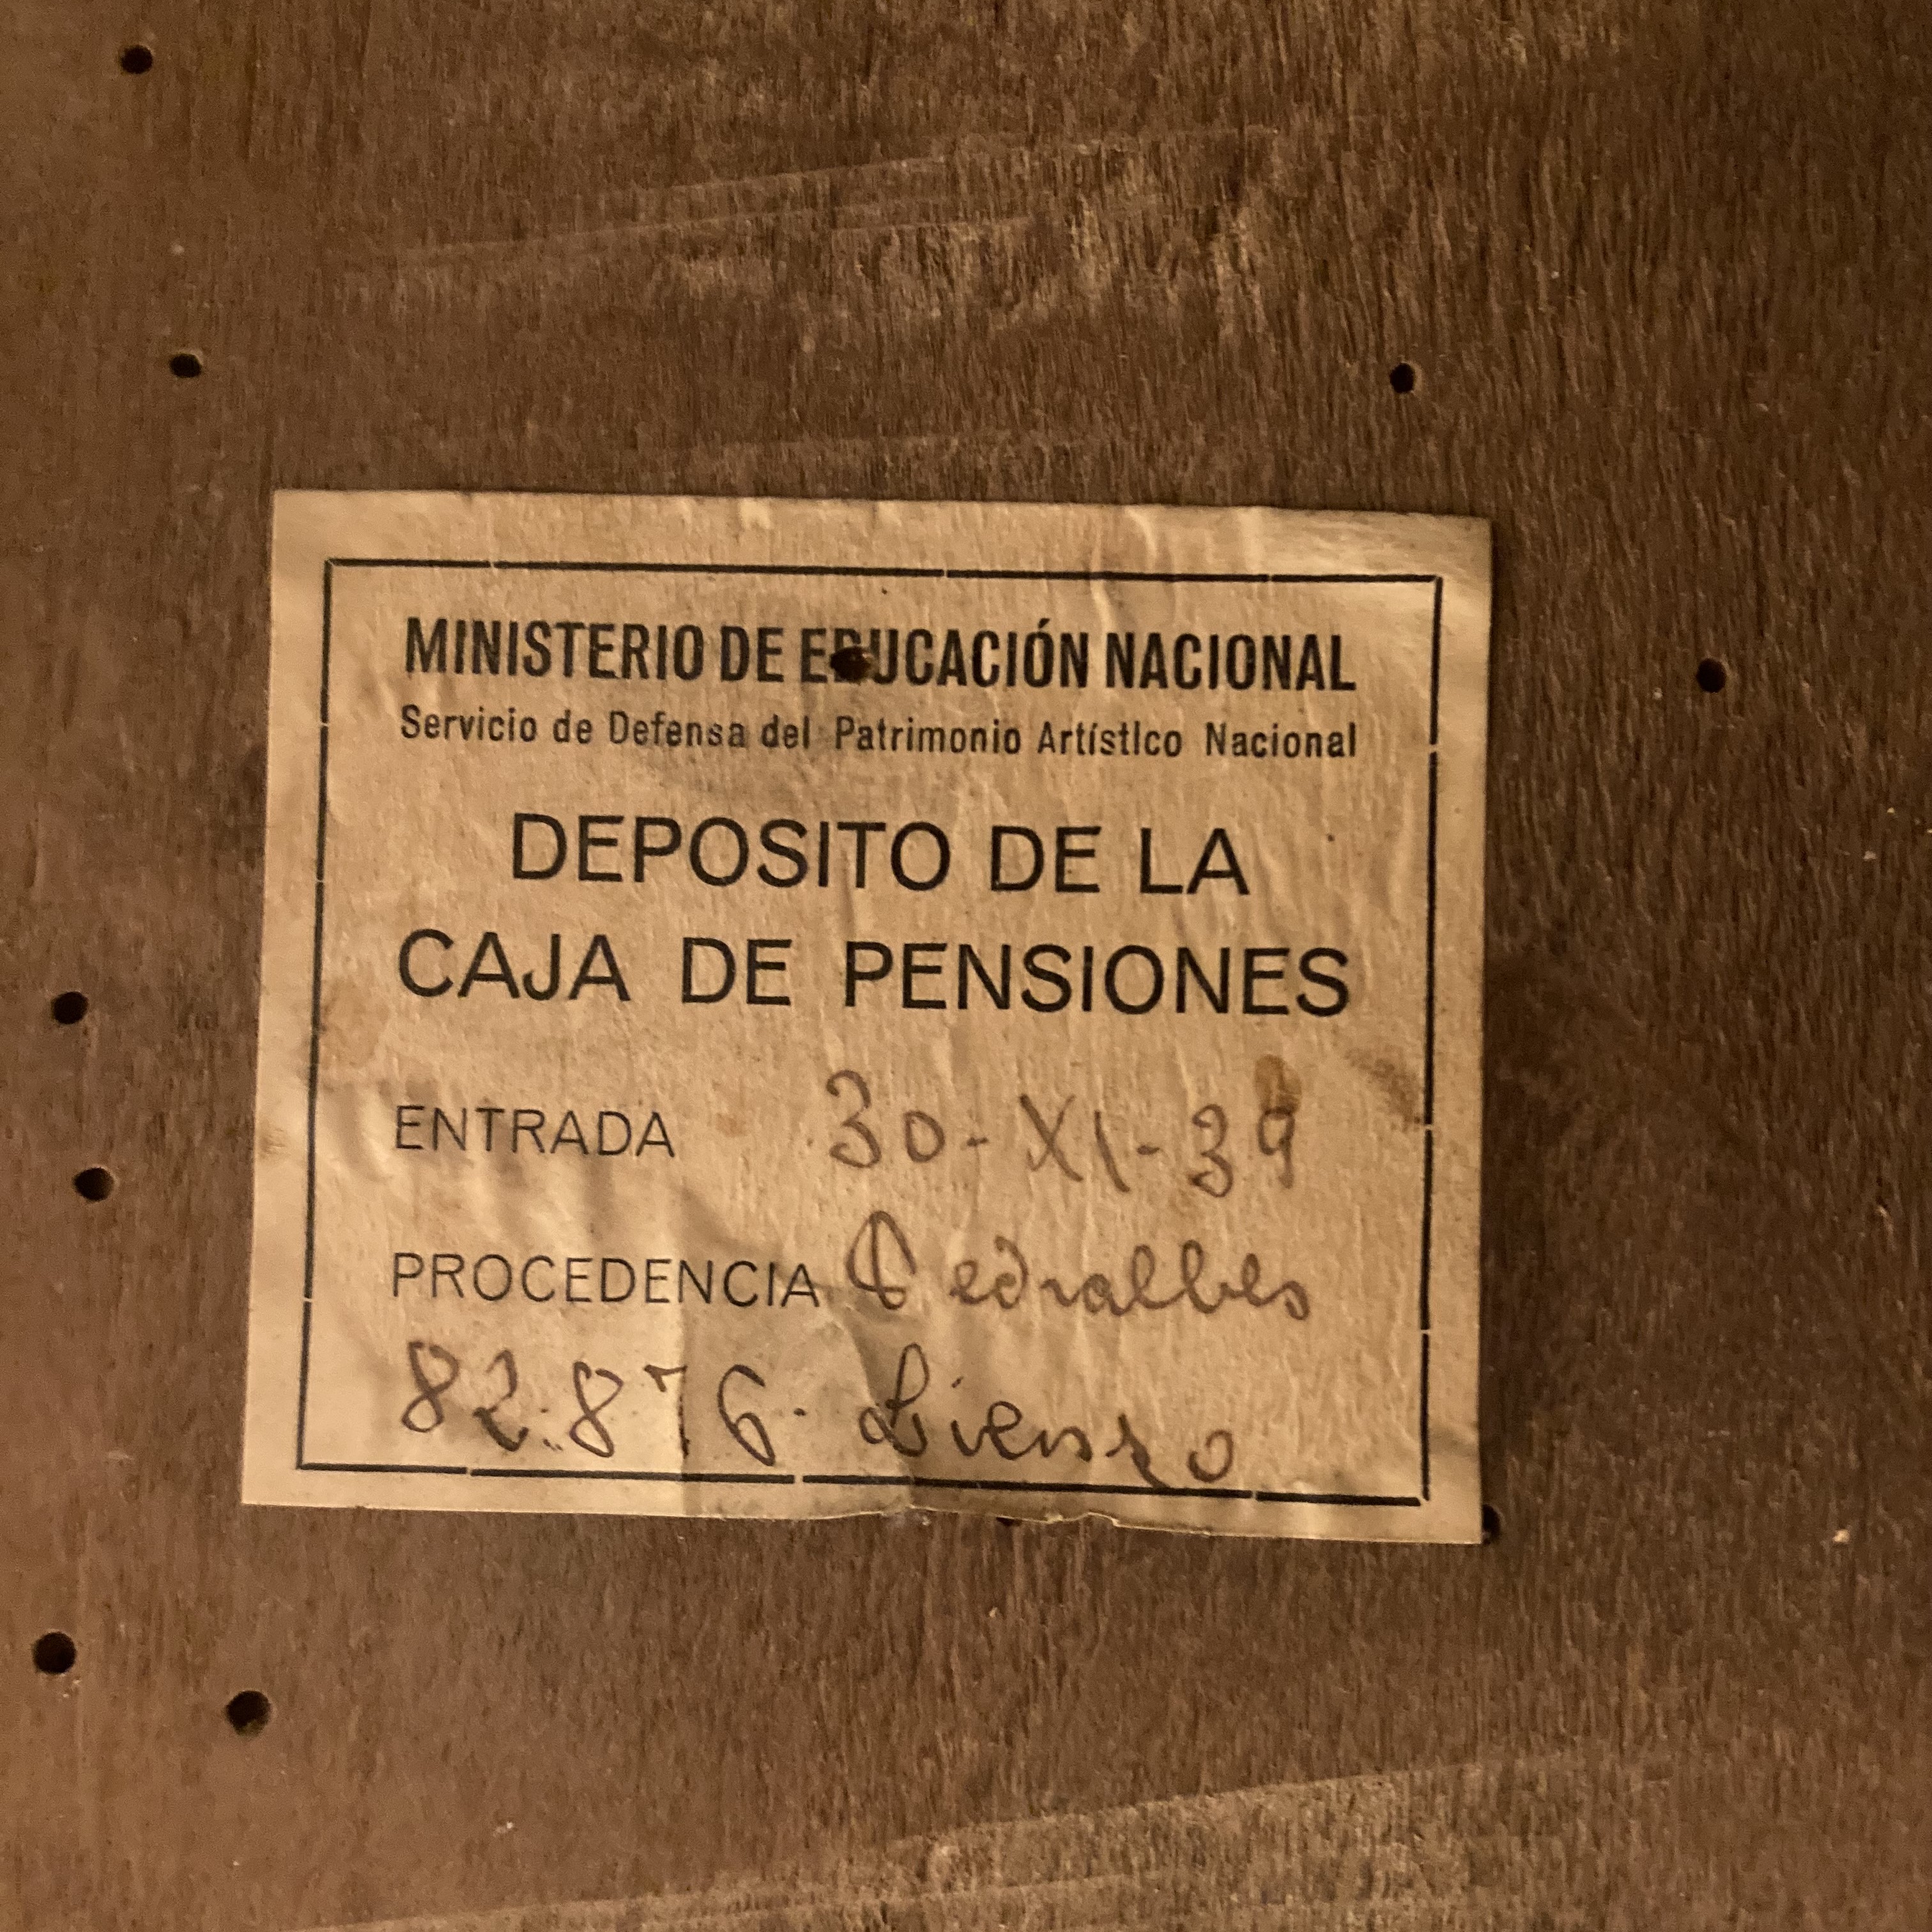 MINISTERIO DE EDUCACIÓN NACIONAL
Servicio de Defensa del Patrimonio Artístico Nacional
DEPOSITO DE LA
CAJA DE PENSIONES
ENTRADA 30-XI-39
PROCEDENCIA Pedralbes
82.876. Lienzo